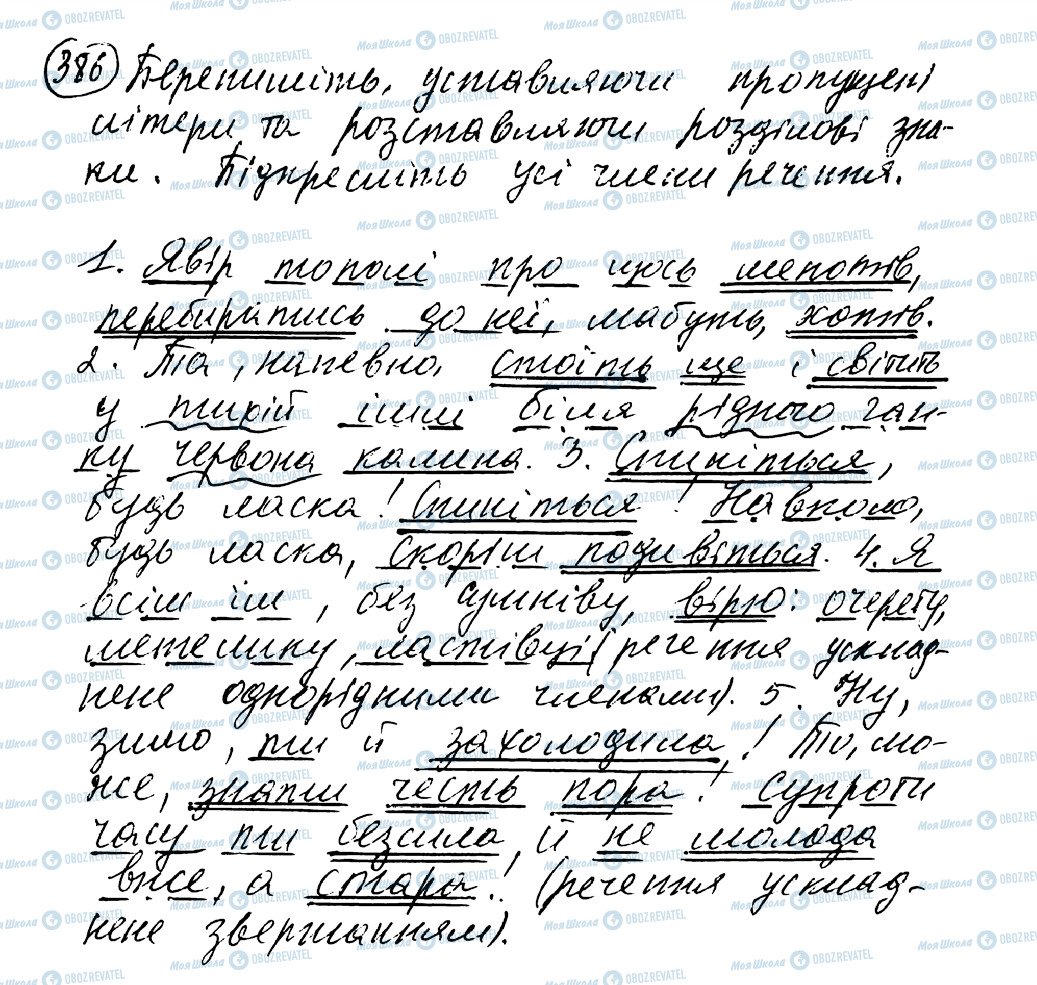 386 Перепишіть, уставляючи пропущені
літери та розставляючи розділові зна-
ки. Підкресліть усі члени речення.
1. Явір тополі про щось шепотів,
перебиратись до неї, мабуть, хотів.
2. Та, напевно, стоїть ще і світить
у тихій імлі біля рідного ган-
ку червона калина. 3. Спиніться,
будь ласка! Спиніться! Навколо,
будь ласка, скоріш подивіться. 4. Я
всім їм, без сумніву, вірю: очерету,
метелику, ластівці (речення усклад-
нене однорідними членами). 5. Ну,
зимо, ти й захолодила! То, мо-
же, знати честь пора! Супроти
часу ти безсила, й не молода
вже, а стара!. (речення усклад-
нене звертанням).